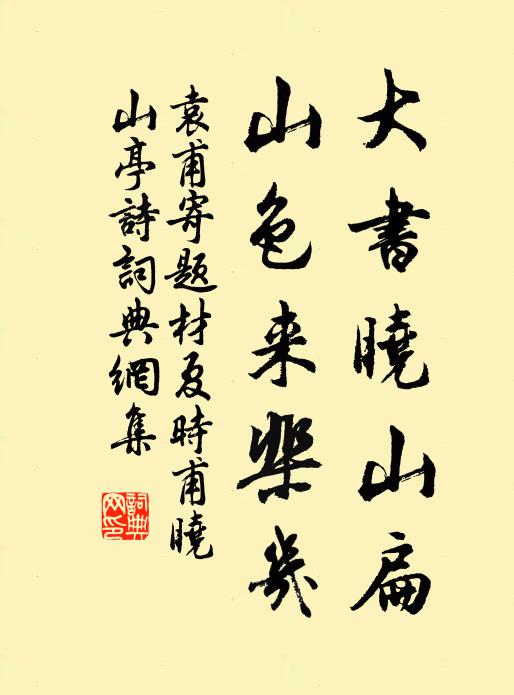 大書曉山扁
山色来棐几
袁甫寄題材夏時甫曉
山亭詩詞典網集
詞典網印